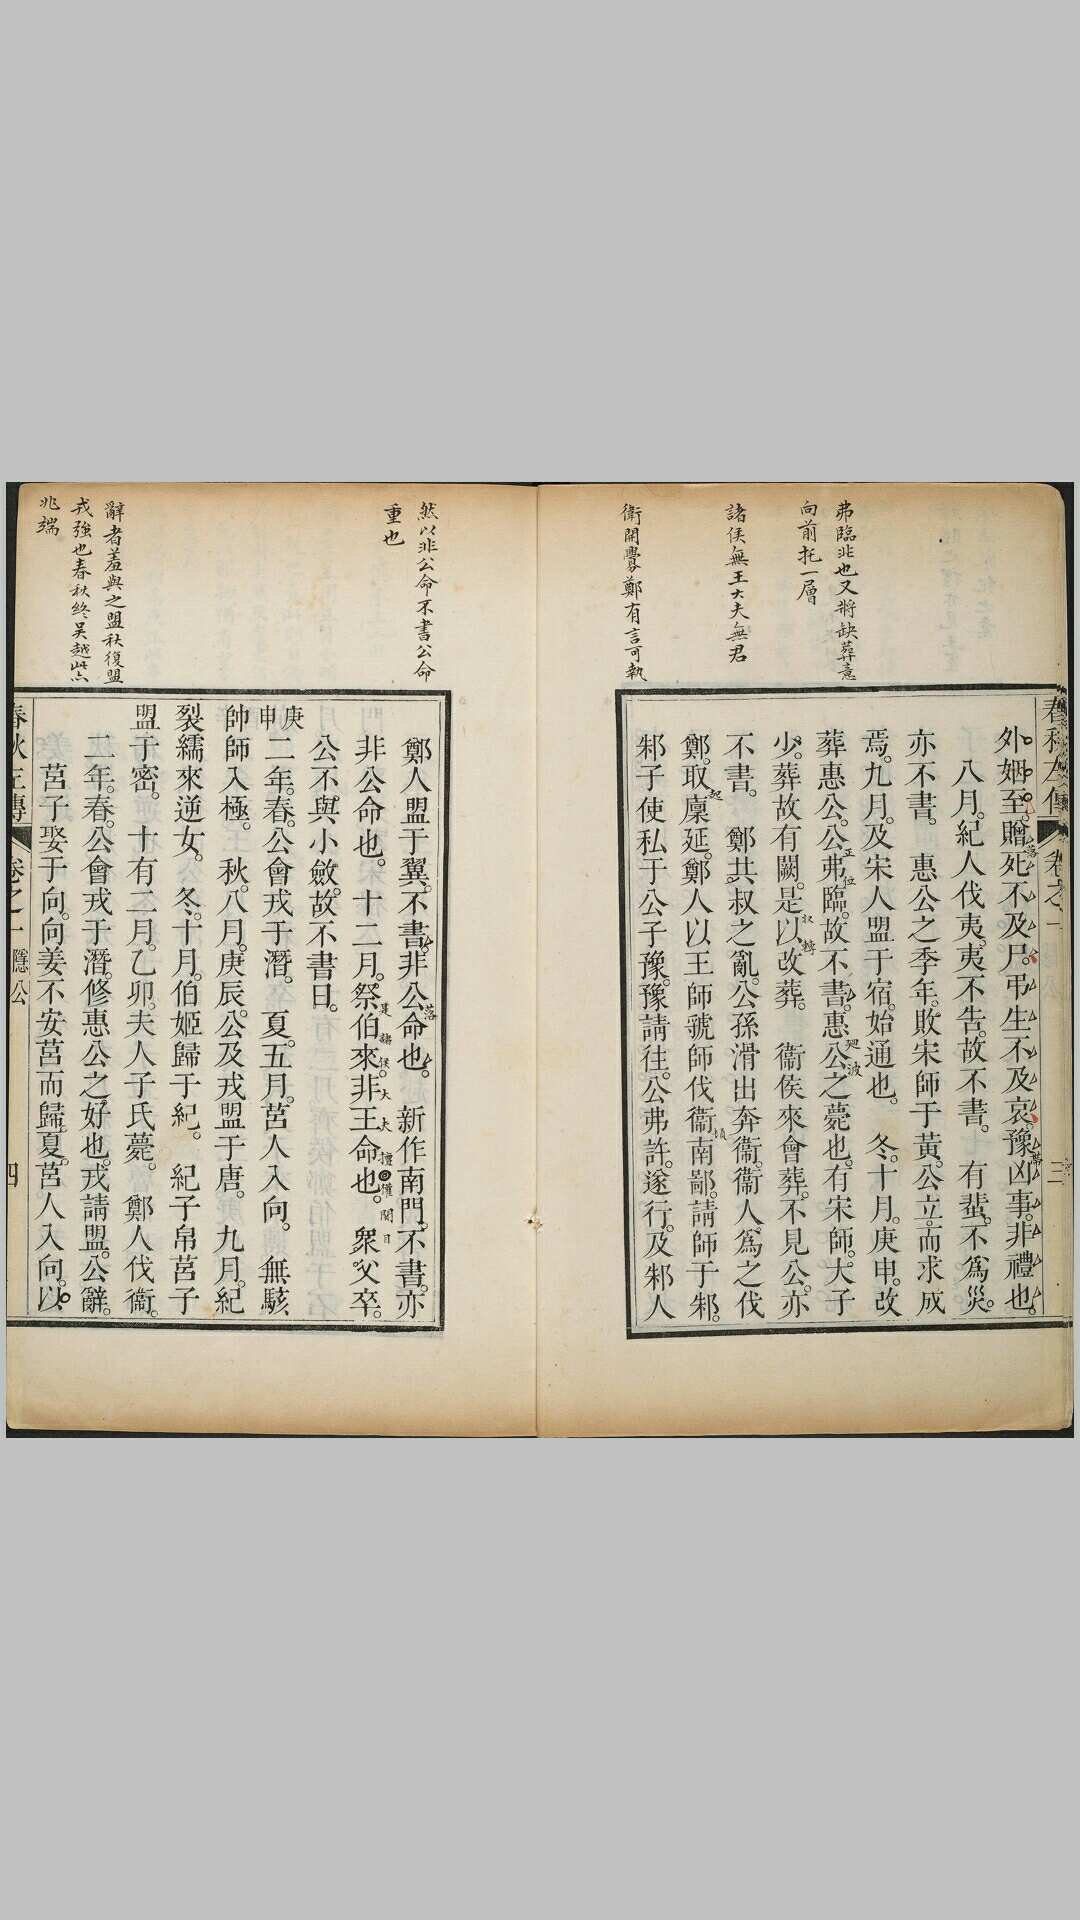 弗臨非也又將缺葬意
向前托一層
諸侯無王大夫無君
衛開釁鄭有言可執
春秋左傳 卷之一 三
外姻至。贈死不及尸。弔生不及哀。豫凶事。非禮也。
八月。紀人伐夷。夷不告。故不書。 有蜚。不爲災。
亦不書。 惠公之季年。敗宋師于黃。公立而求成
焉。九月。及宋人盟于宿。始通也。 冬。十月。庚申。改
葬惠公。公弗臨。故不書。惠公之薨也。有宋師。大子
少。葬故有闕。是以改葬。 衞侯來會葬。不見公。亦
不書。 鄭共叔之亂。公孫滑出奔衞。衞人爲之伐
鄭。取廩延。鄭人以王師虢師伐衞南鄙。請師于邾。
邾子使私于公子豫。豫請往。公弗許。遂行。及邾人
正位
収轉
廻波
起
然以非公命不書公命
重也
辭者羞與之盟秋復盟
戎強也春秋終吳越此六
兆端
鄭人盟于翼。不書。非公命也。 新作南門。不書。亦
非公命也。 十二月。祭伯來。非王命也。 衆父卒。
公不與小斂。故不書日。
庚申 二年。春。公會戎于潛。 夏。五月。莒人入向。 無駭
帥師入極。 秋。八月。庚辰。公及戎盟于唐。 九月。紀
裂繻來逆女。 冬。十月。伯姬歸于紀。 紀子帛莒子
盟于密。 十有二月。乙卯。夫人子氏薨。 鄭人伐衞。
二年。春。公會戎于潛。修惠公之好也。戎請盟。公辭。
莒子娶于向。向姜不安莒而歸。夏。莒人入向。以
春秋左傳 卷之一 隱公 四
落
是諸侯大夫擅權開目